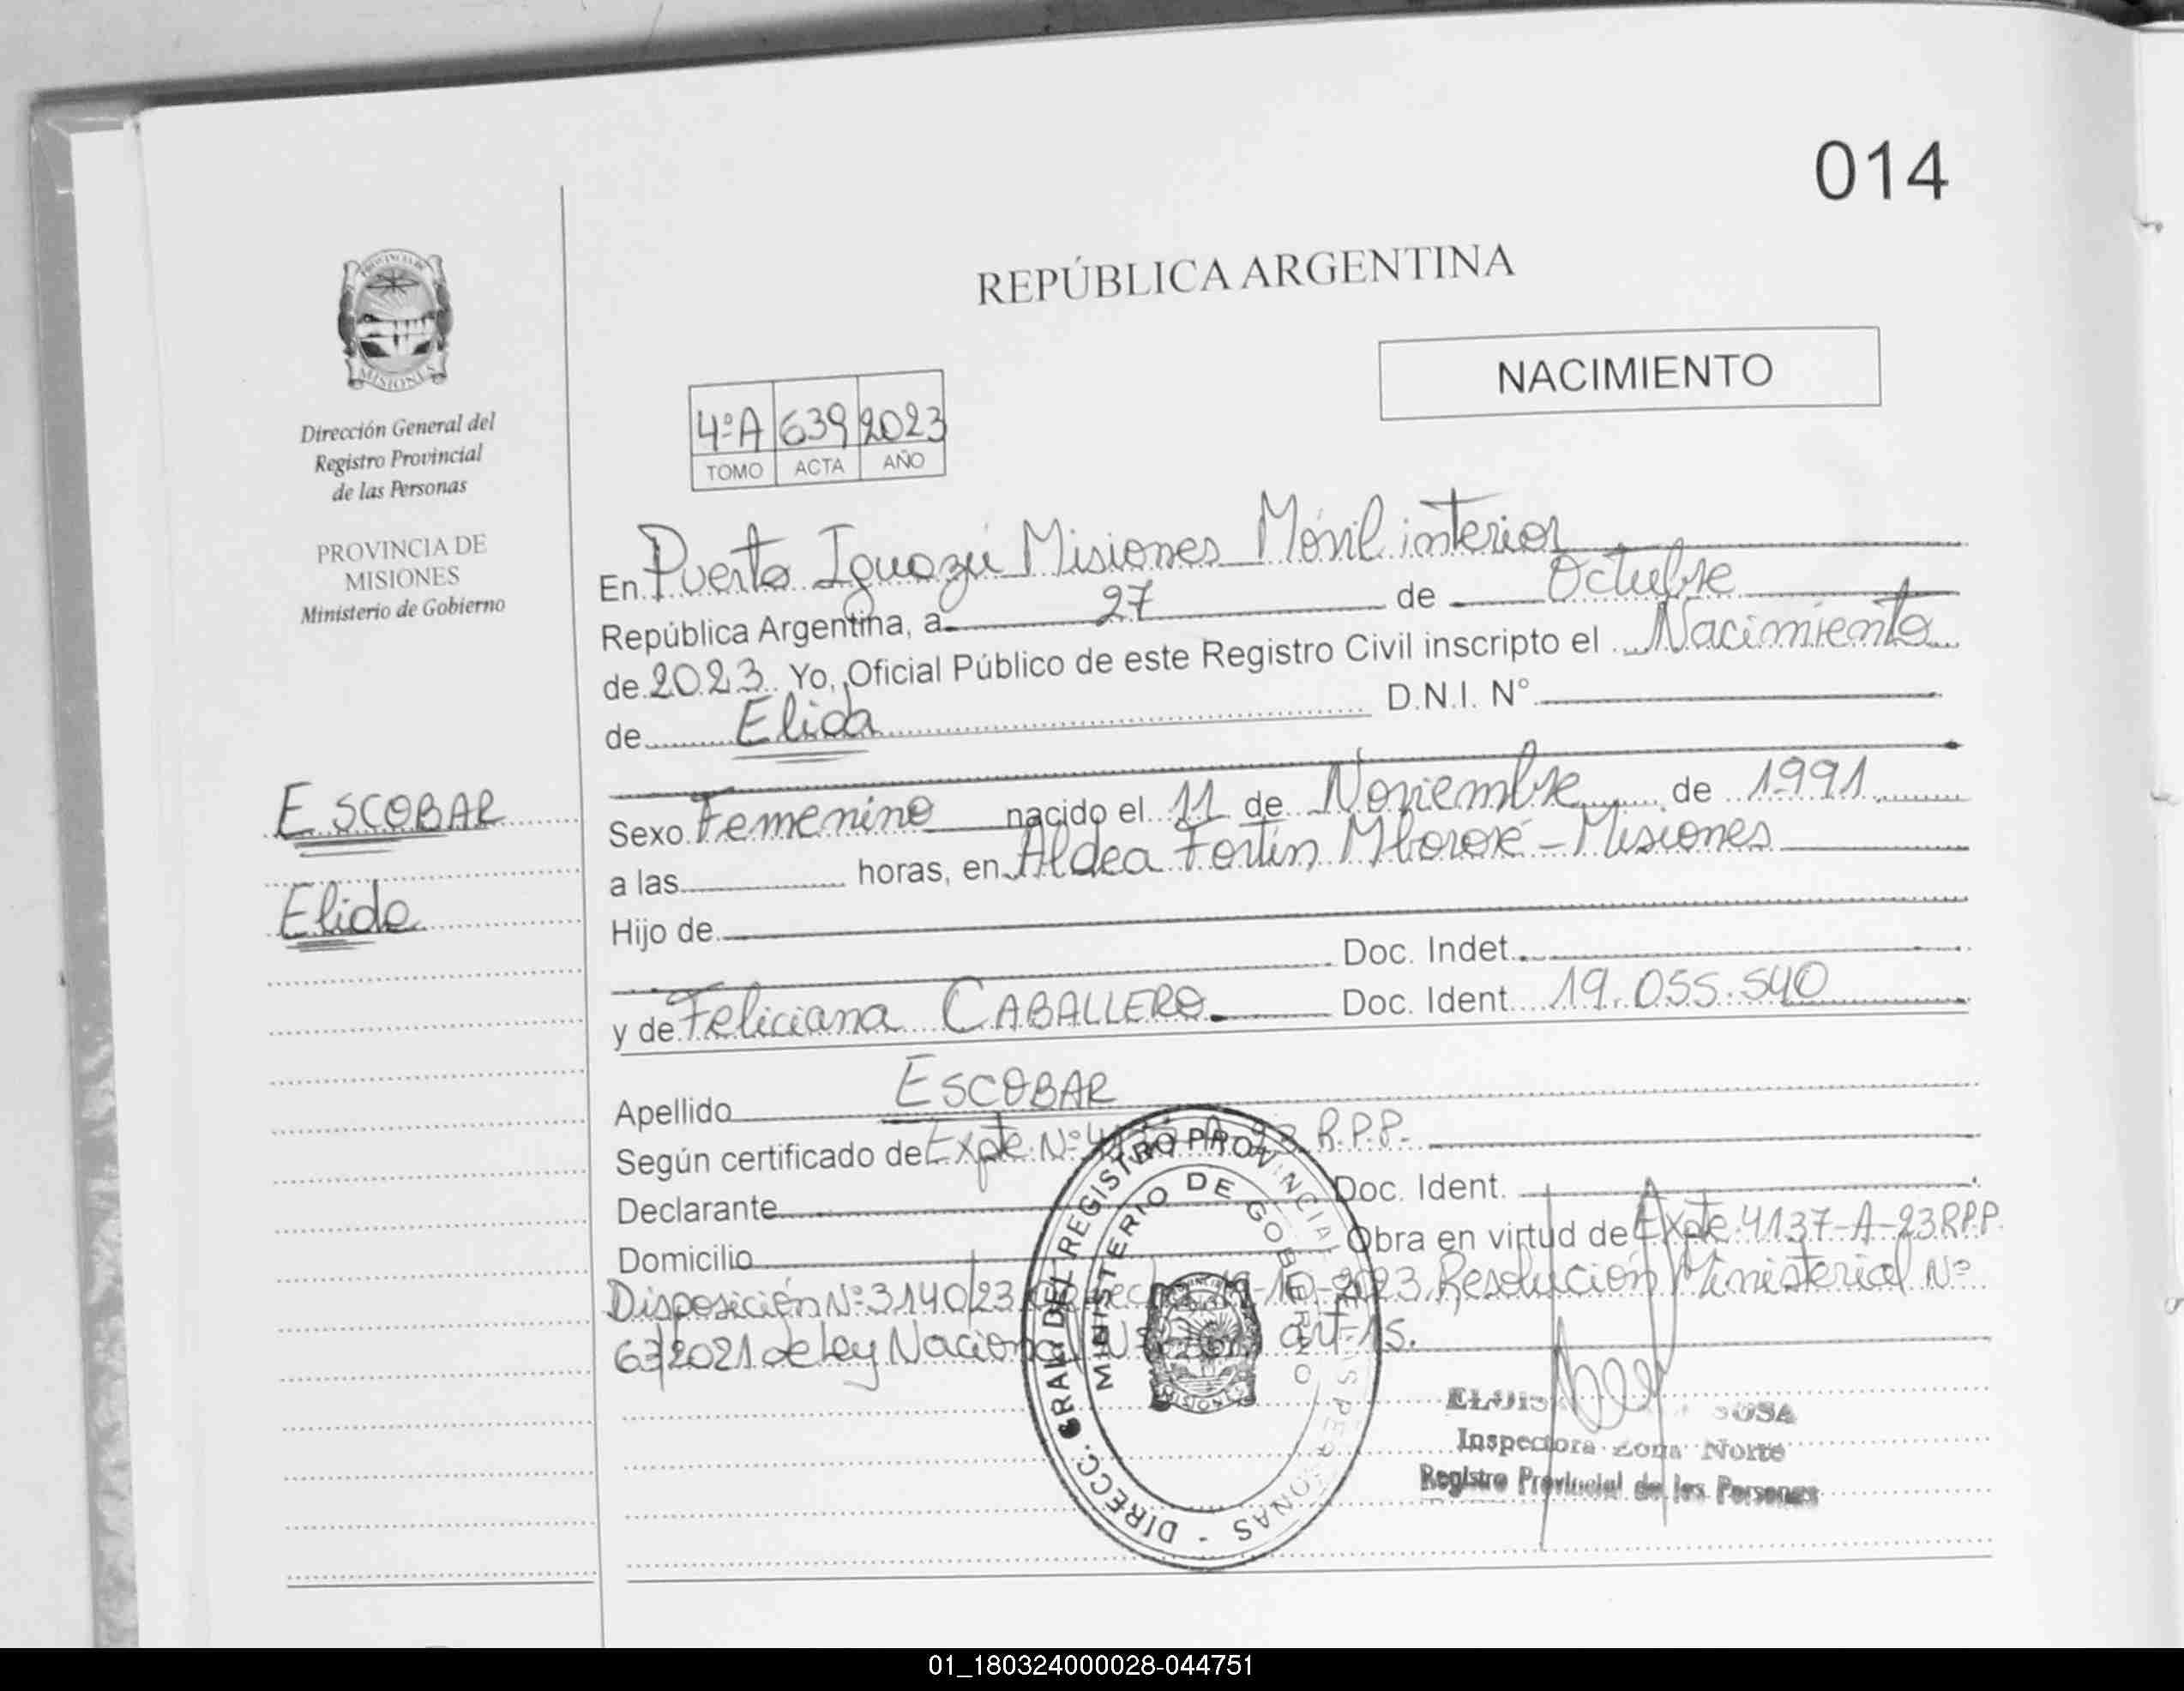 014
REPÚBLICA ARGENTINA
NACIMIENTO
PROVINCIA DE
MISIONES
Dirección General del
Registro Provincial
de las Personas
PROVINCIA DE
MISIONES
Ministerio de Gobierno
4ºA 639 2023
TOMO ACTA AÑO
En Puerto Iguazú Misiones Móvil interior
República Argentina, a 27 de Octubre
de 2023. Yo, Oficial Público de este Registro Civil inscripto el Nacimiento
de Elida D.N.I. N°
ESCOBAR
Elida
Sexo Femenino nacido el 11 de Noviembre de 1991
a las horas, en Aldea Fortín Mbororé - Misiones
Hijo de
Doc. Indet.
y de Feliciana CABALLERO Doc. Ident. 19.055.540
Apellido ESCOBAR
Según certificado de Expte. Nº R.P.P.
Declarante Doc. Ident.
Domicilio Obra en virtud de Expte. 4137-A-23 R.P.P.
Disposición Nº 3140/23 -10-2023 Resolución Ministerial Nº
63/2021 de ley Nacional art 15.
DIRECC. GRAL. DEL REGISTRO PROVINCIAL DE LAS PERSONAS -
MINISTERIO DE GOBIERNO
MISIONES
SOSA
Inspectora Zona Norte
Registro Provincial de las Personas
01_180324000028-044751